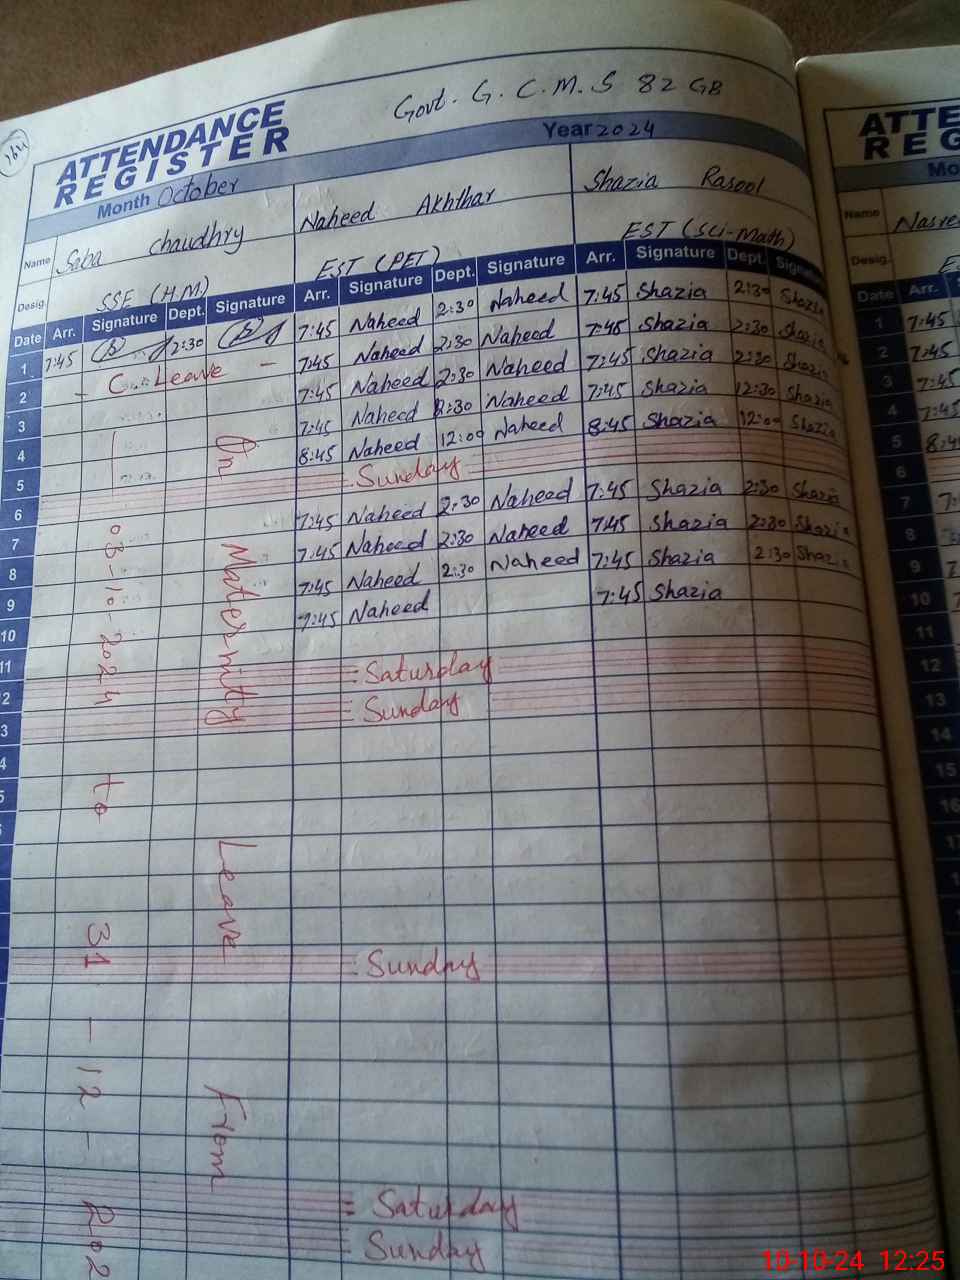 264
Govt. G. C. M. S 82 GB
ATTENDANCE
REGISTER
Month October Year 2024
Name Saba Chaudhry Naheed Akhthar Shazia Rasool
Desig. SSE (H.M.) EST (PET) EST (Sci-Math)
Date Arr. Signature Dept. Signature Arr. Signature Dept. Signature Arr. Signature Dept. Signature
1 7:45 2:30 7:45 Naheed 2:30 Naheed 7:45 Shazia 2:30 Shazia
2 - C. Leave - 7:45 Naheed 2:30 Naheed 7:45 Shazia 2:30 Shazia
3 7:45 Naheed 2:30 Naheed 7:45 Shazia 2:30 Shazia
4 7:45 Naheed 2:30 Naheed 7:45 Shazia 12:30 Shazia
5 8:45 Naheed 12:00 Naheed 8:45 Shazia 12:00 Shazia
6 Sunday
7 7:45 Naheed 2:30 Naheed 7:45 Shazia 2:30 Shazia
8 7:45 Naheed 2:30 Naheed 7:45 Shazia 2:30 Shazia
9 7:45 Naheed 2:30 Naheed 7:45 Shazia 2:30 Shazia
10 7:45 Naheed 7:45 Shazia
11
2 Saturday
3 Sunday
4
5
Sunday
Saturday
Sunday
On Maternity Leave From
03-10-2024 to 31-12-202
ATTE
REG
Mo
Name Nasre
Desig. E
Date Arr.
1 7:45
2 7:45
3 7:45
4 7:45
5 8:4
6
7 7:
8
9 7
10
11
12
13
14
15
16
10-10-24 12:25